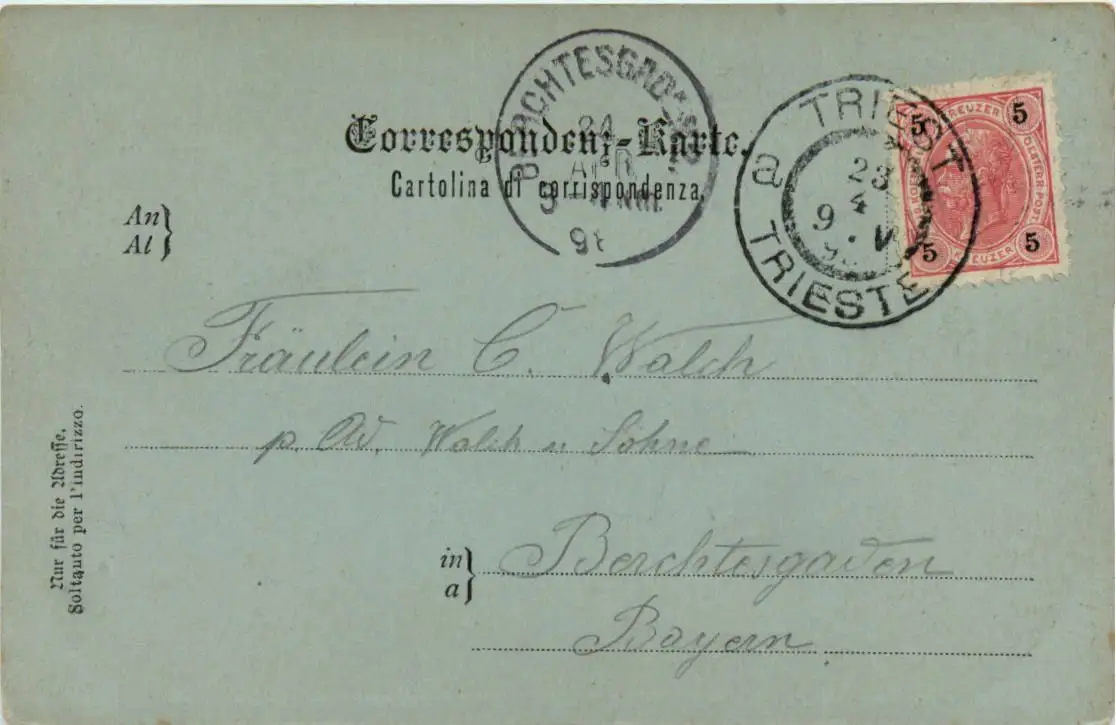 Correspondenz-Karte.
Cartolina di corrispondenza,
BERCHTESGADEN
24
APR
98
TRIEST
a
23
4
9 V
TRIESTE
5 KREUZER 5
OESTERR. POST
5 KREUZER 5
An
Al
Fräulein C. Walch
p. Ad. Walch u Söhne
in
a
Berchtesgaden
Bayern
Nur für die Adresse.
Soltanto per l'indirizzo.